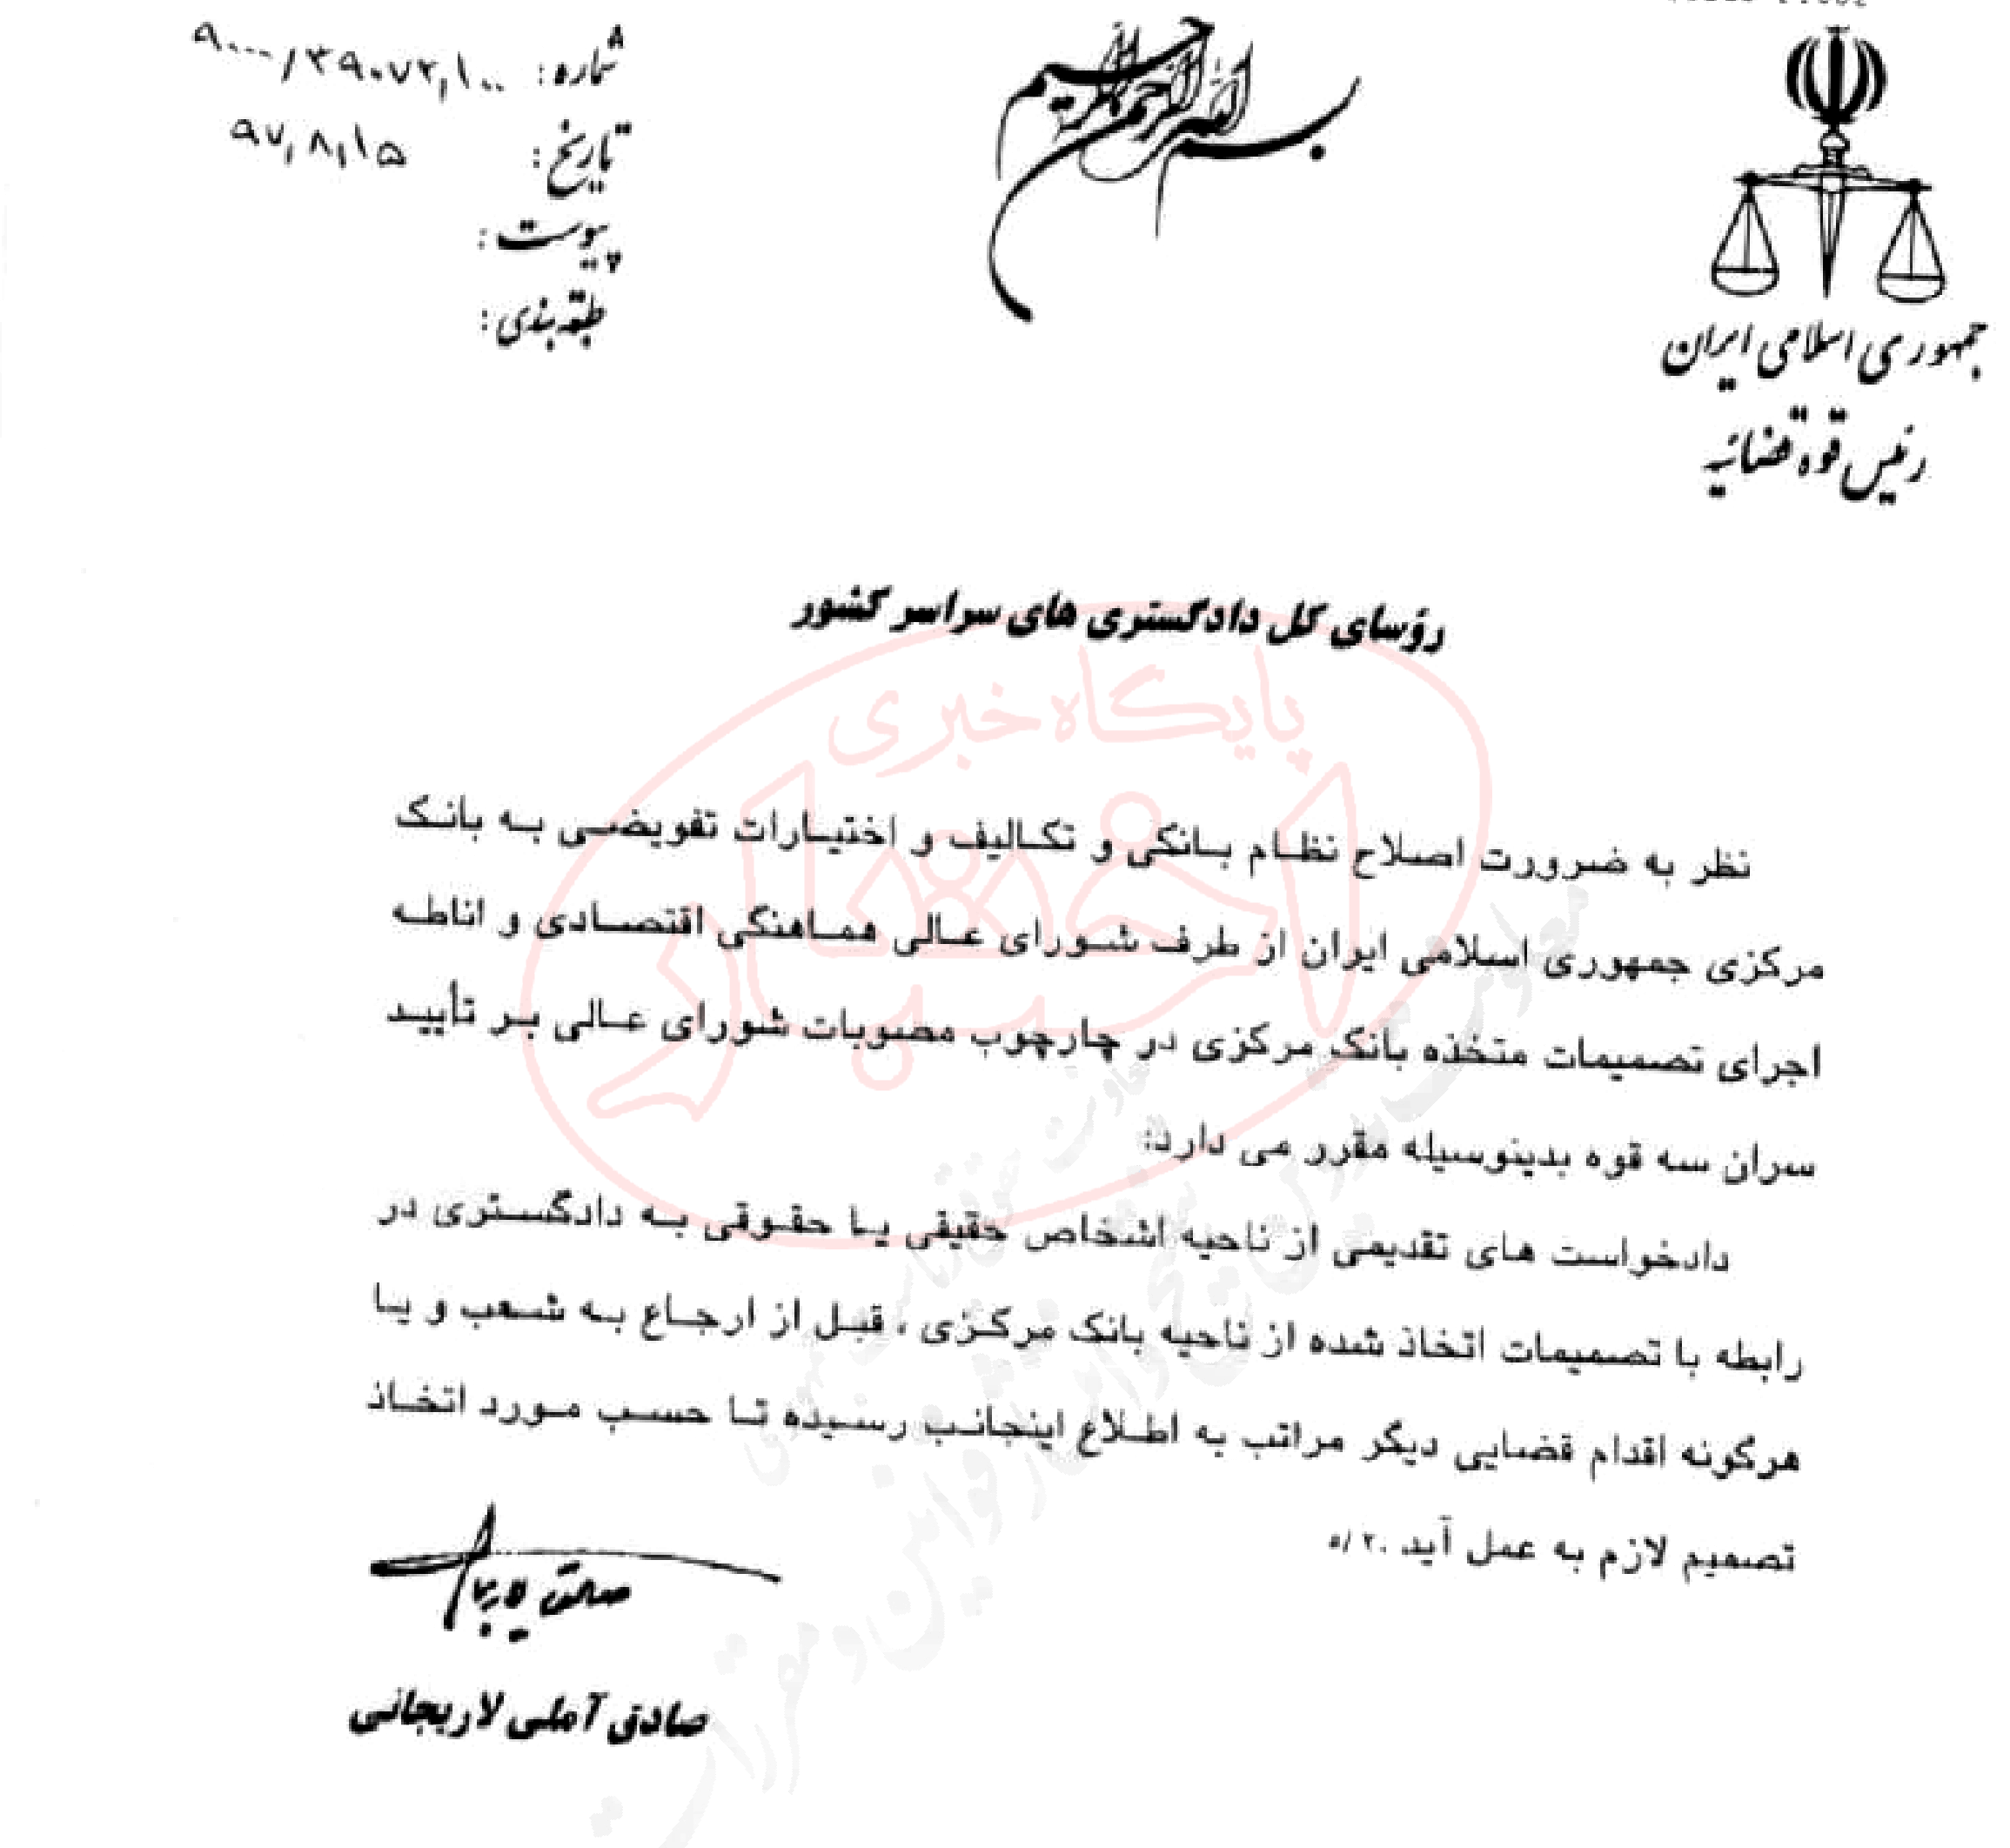 بسم الله الرحمن الرحیم
جمهوری اسلامی ایران
رئیس قوه قضائیه
شماره: ۹۰۰۰/۳۹۰۷۳/۱۰۰
تاریخ: ۹۷/۸/۱۵
پیوست:
طبقه بندی:
رؤسای کل دادگستری های سراسر کشور
پایگاه خبری
اختبار
نظر به ضرورت اصلاح نظام بانکی و تکالیف و اختیارات تفویضی به بانک
مرکزی جمهوری اسلامی ایران از طرف شورای عالی هماهنگی اقتصادی و اناطه
اجرای تصمیمات متخذه بانک مرکزی در چارچوب مصوبات شورای عالی بر تأیید
سران سه قوه بدینوسیله مقرر می دارد:
دادخواست های تقدیمی از ناحیه اشخاص حقیقی یا حقوقی به دادگستری در
رابطه با تصمیمات اتخاذ شده از ناحیه بانک مرکزی ، قبل از ارجاع به شعب و یا
هرگونه اقدام قضایی دیگر مراتب به اطلاع اینجانب رسیده تا حسب مورد اتخاذ
تصمیم لازم به عمل آید .۵/۲
صادق آملی لاریجانی